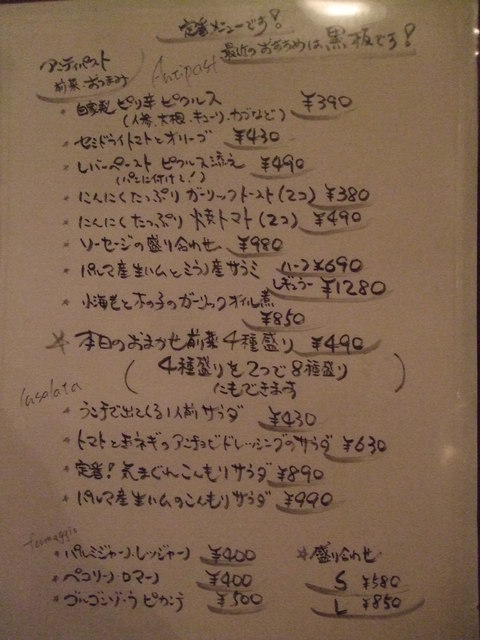 定番メニューです!
最近のおすすめは黒板です!
アンティパスト Antipast
前菜・おつまみ
自家製ピリ辛ピクルス ¥390
(人参、大根、キューリ、カブなど)
セミドライトマトとオリーブ ¥430
レバーペースト ピクルス添え ¥490
(パンに付けて!)
にんにくたっぷりガーリックトースト(2コ) ¥380
にんにくたっぷり焼トマト(2コ) ¥490
ソーセージの盛り合わせ ¥980
パルマ産生ハムとミラノ産サラミ ハーフ¥690
レギュラー ¥1280
小海老と木の子のガーリックオイル煮
¥850
本日のおまかせ前菜4種盛り ¥490
(4種盛りを2つで8種盛り
にもできます)
Insalata
うこ手で出てくる1人前サラダ ¥430
トマトと玉ネギのアンチョビドレッシングのサラダ ¥630
定番!気まぐれこんもりサラダ ¥890
パルマ産生ハムのこんもりサラダ ¥990
formaggio
パルミジャーノ・レッジャーノ ¥400 盛り合わせ
ペコリーノ・ロマーノ ¥400 S ¥580
ゴルゴンゾーラ ピカンテ ¥500 L ¥850